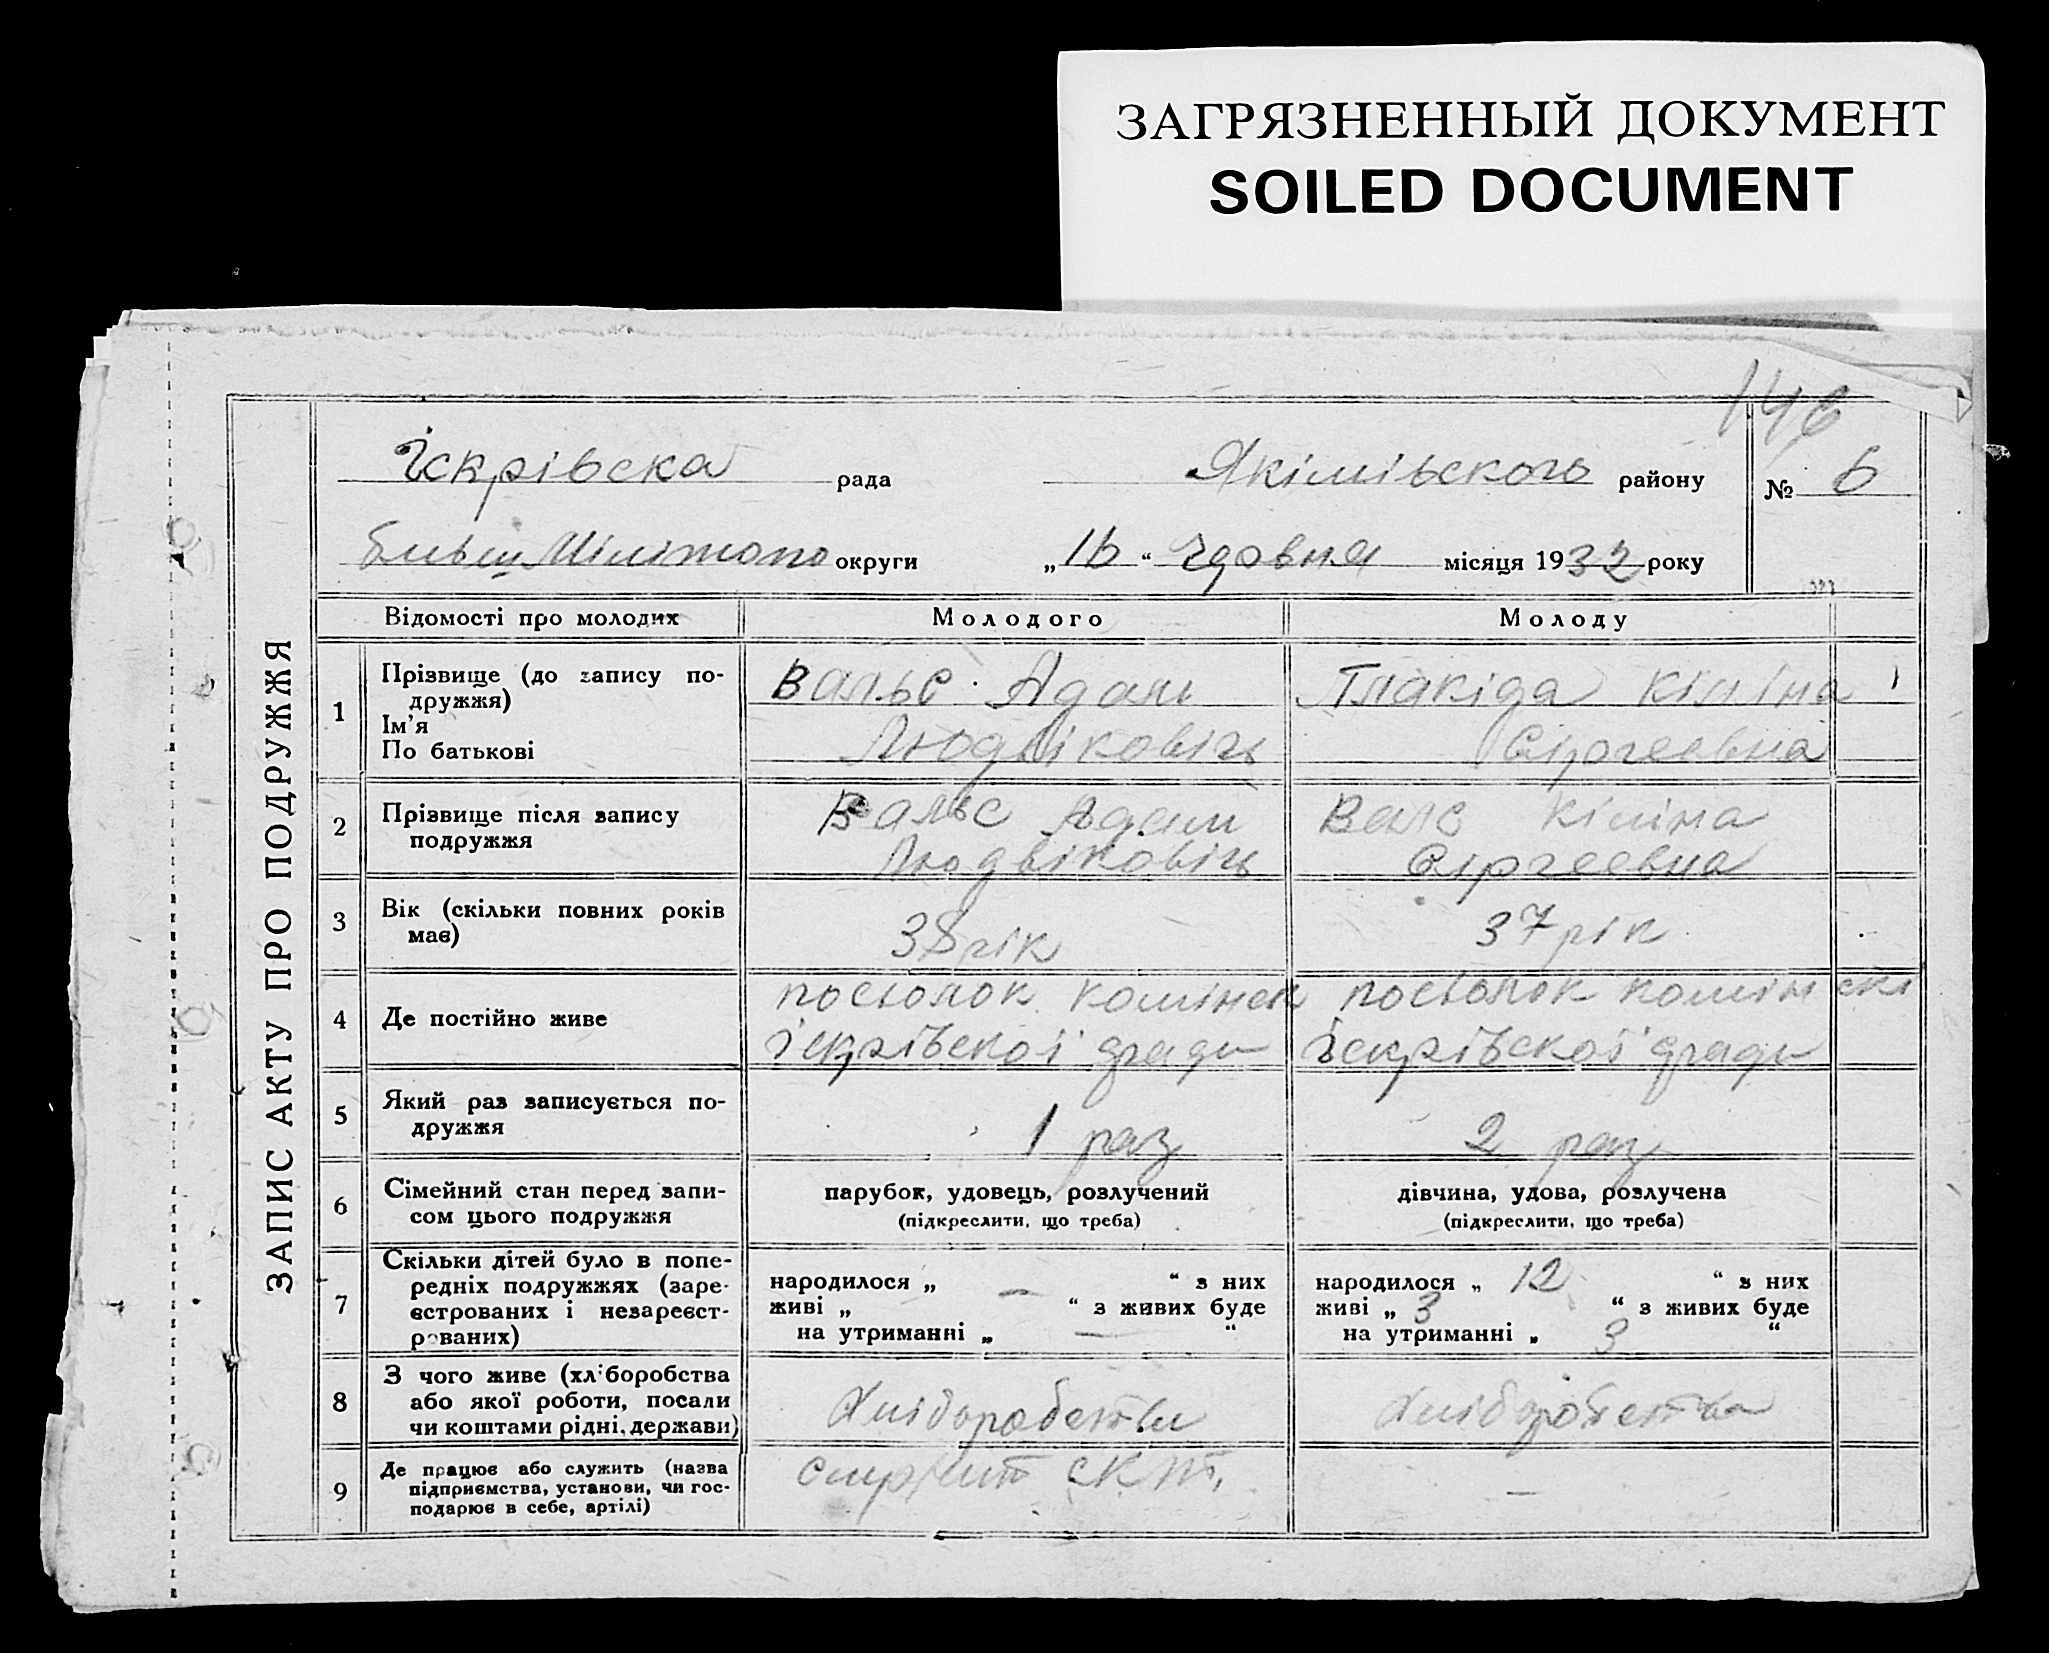 ЗАГРЯЗНЕННЫЙ ДОКУМЕНТ
SOILED DOCUMENT
146
Іскрівска рада Якімівського району № 6
Мілітопо округи „16“ Червня місяця 1932 року
ЗАПИС АКТУ ПРО ПОДРУЖЖЯ
Відомості про молодих Молодого Молоду
1 Прізвище (до запису по-
дружжя)
Ім'я
По батькові
Вальс Адам
Людвіковіч
Плакіда Кіліна
Сіргеевна
2 Прізвище після запису
подружжя
Вальс Адам
Людвіковіч
Валс Кіліна
Сіргеевна
3 Вік (скільки повних років
має)
38 рік
37 рік
4 Де постійно живе
посьолок
Іскрівскої
посьолок
Іскрівскої
5 Який раз записується по-
дружжя
1 раз
2 раз
6 Сімейний стан перед запи-
сом цього подружжя
парубок, удовець, розлучений
(підкреслити, що треба)
дівчина, удова, розлучена
(підкреслити, що треба)
7 Скільки дітей було в попе-
редніх подружжях (заре-
єстрованих і незареєст-
рованих)
народилося „ — “ з них
живі „ “ з живих буде
на утриманні „ — “
народилося „ 12 “ з них
живі „ 3 “ з живих буде
на утриманні „ 3 “
8 З чого живе (хліборобства
або якої роботи, посали
чи коштами рідні, держави)
9 Де працює або служить (назва
підприємства, установи, чи гос-
подарює в себе, артілі)
—